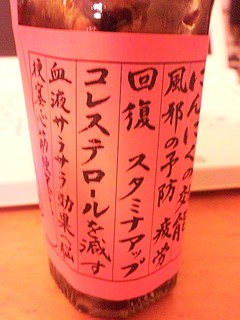 にんにくの効能
風邪の予防 疲労
回復 スタミナアップ
コレステロールを減す
血液サラサラ効果(脳
梗塞心筋